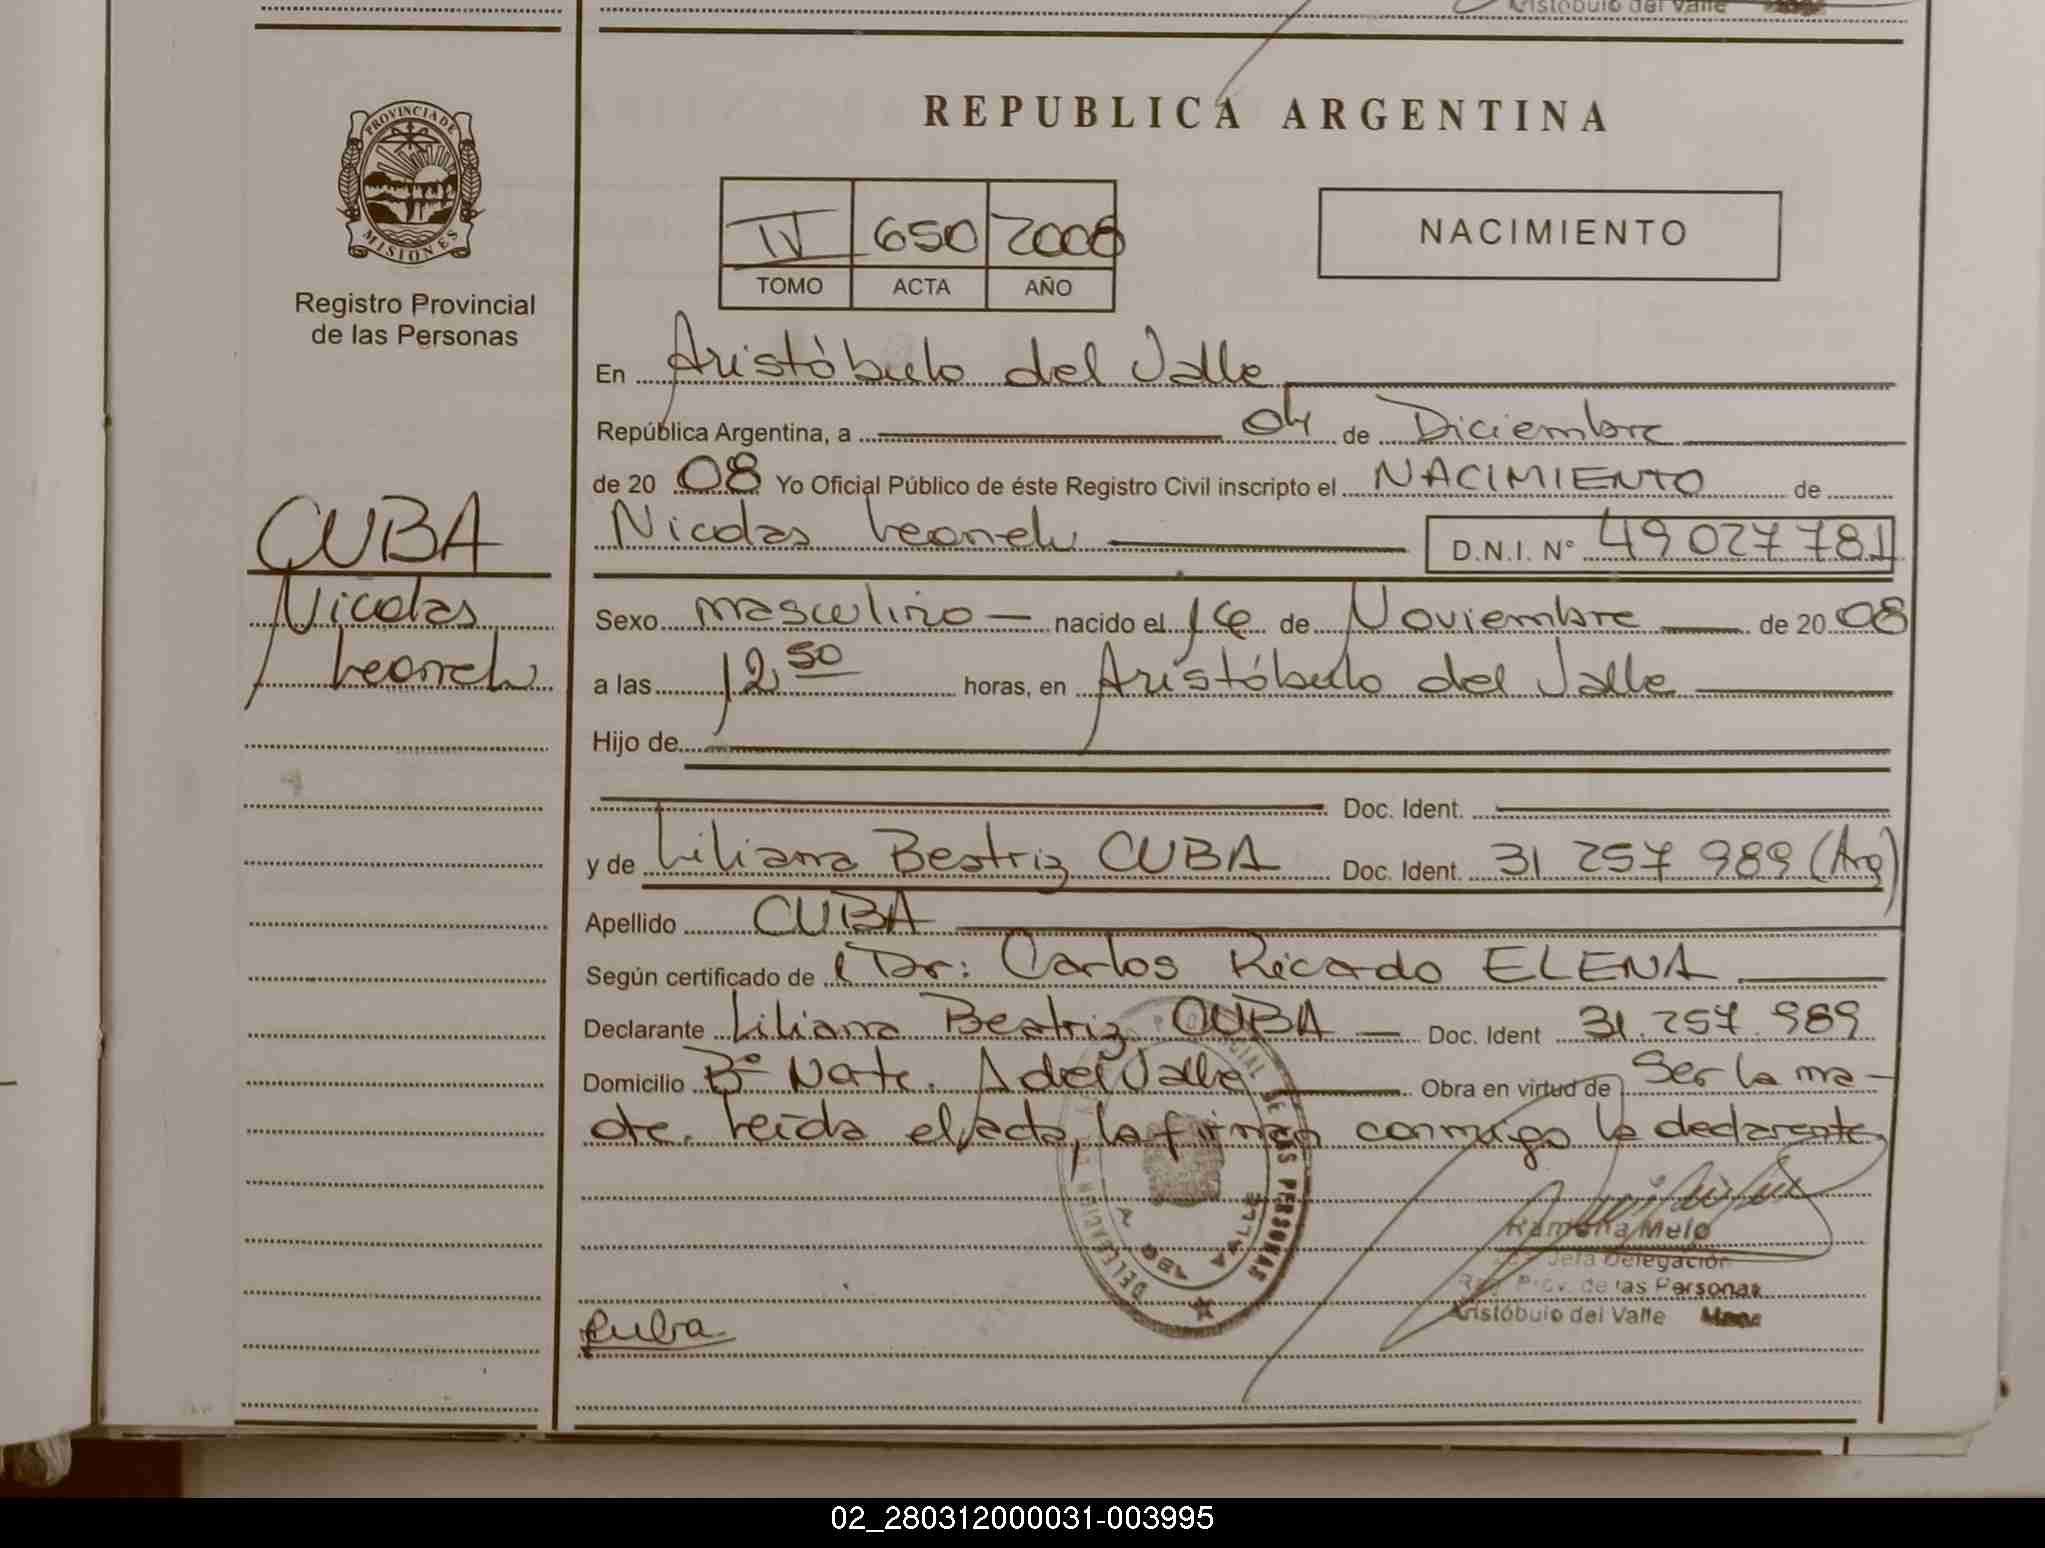 Aristóbulo del Valle
PROVINCIA DE
MISIONES
Registro Provincial
de las Personas
REPUBLICA ARGENTINA
IV 650 2008
TOMO ACTA AÑO
NACIMIENTO
En Aristóbulo del Valle
República Argentina, a 04 de Diciembre
de 20 08 Yo Oficial Público de éste Registro Civil inscripto el NACIMIENTO de
CUBA
Nicolas Leonel
D.N.I. N° 49 027 781
Nicolas
Leonel
Sexo masculino nacido el de Noviembre de 20 08
a las 12,50 horas, en Aristóbulo del Valle
Hijo de
Doc. Ident.
y de Liliana Beatriz CUBA Doc. Ident. 31 257 989 (Arg)
Apellido CUBA
Según certificado de Dr: Carlos Ricardo ELENA
Declarante Liliana Beatriz CUBA Doc. Ident 31.257.989
Domicilio B° Nate. A del Valle Obra en virtud de Ser la ma-
dre. Leída el acta, la firman conmigo la declarante
Ramona Melo
Jefa Delegación
Reg. Prov. de las Personas
Aristóbulo del Valle Mnes
Cuba
02_280312000031-003995